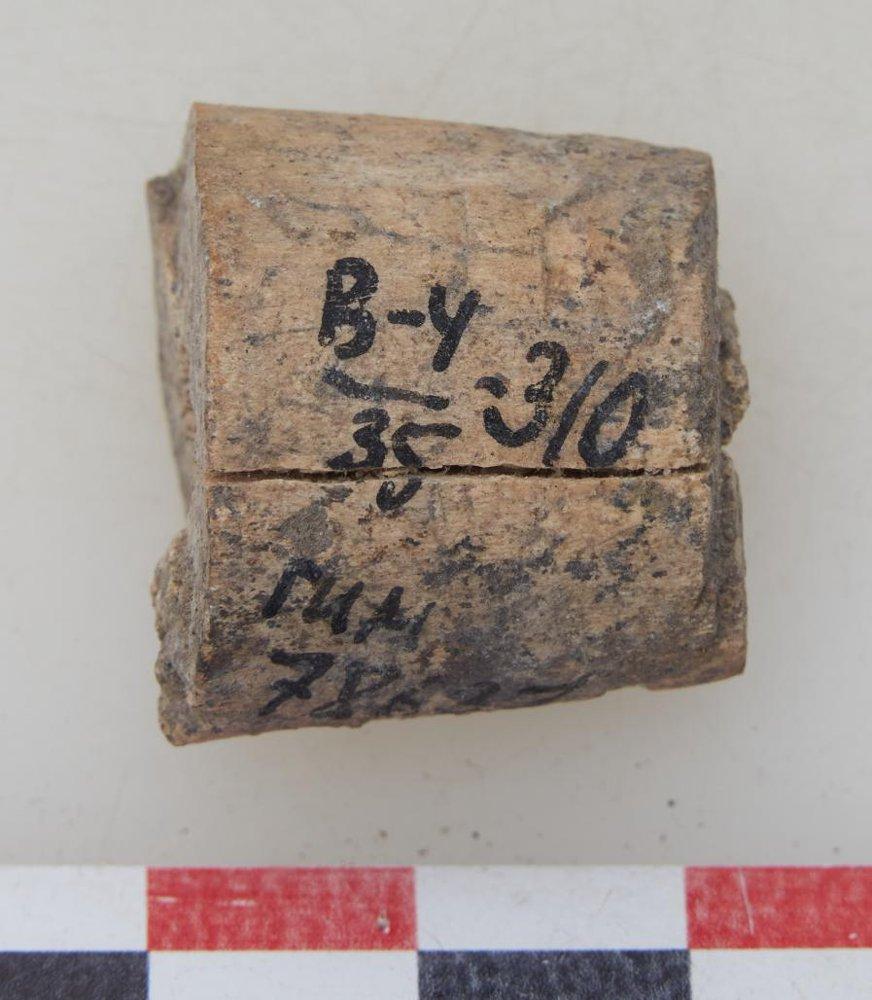 В-4
35 :310
ГИМ
78